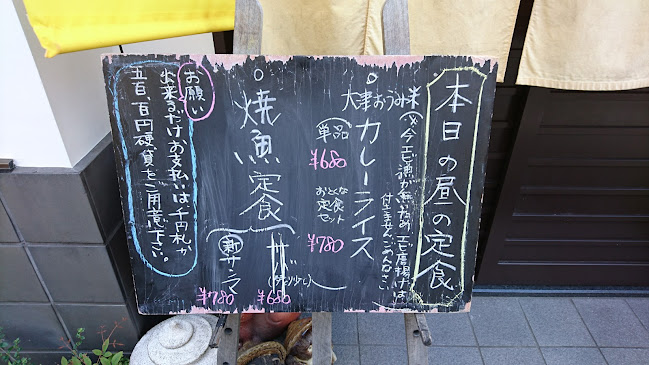 本日の昼の定食
(※今エビ漁が無いため、エビ唐揚げは
付きません。ごめんなさい。
大津おうみ米
カレーライス
単品
¥680
おとくな
定食
セット
¥780
焼魚定食
サバ
¥680
新サンマ
¥780
お願い
出来るだけお支払いは千円札か
五百、百円硬貨をご用意下さい。